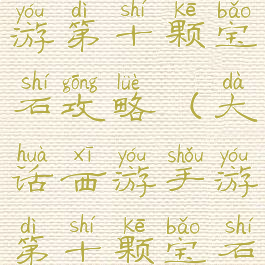 yóu dì shí Kē bǎo
游第十颗宝
shí gōng lüè dà
石攻略（大
huà xī yóu shǒu yóu
话西游手游
dì shí Kē bǎo shí
第十颗宝石